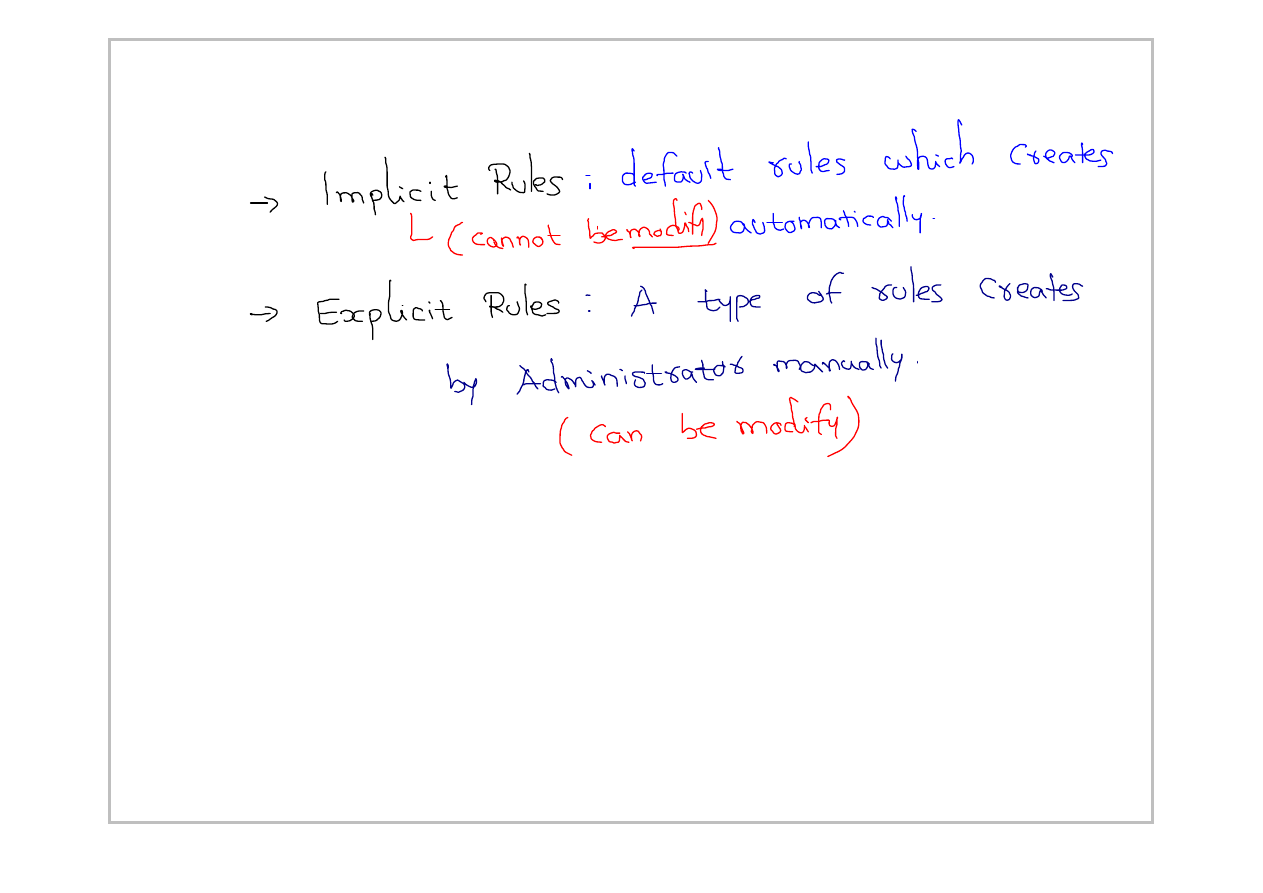 → Implicit Rules : default rules which creates
(cannot be modify) automatically.
→ Explicit Rules : A type of rules creates
by Administrator manually.
(can be modify)